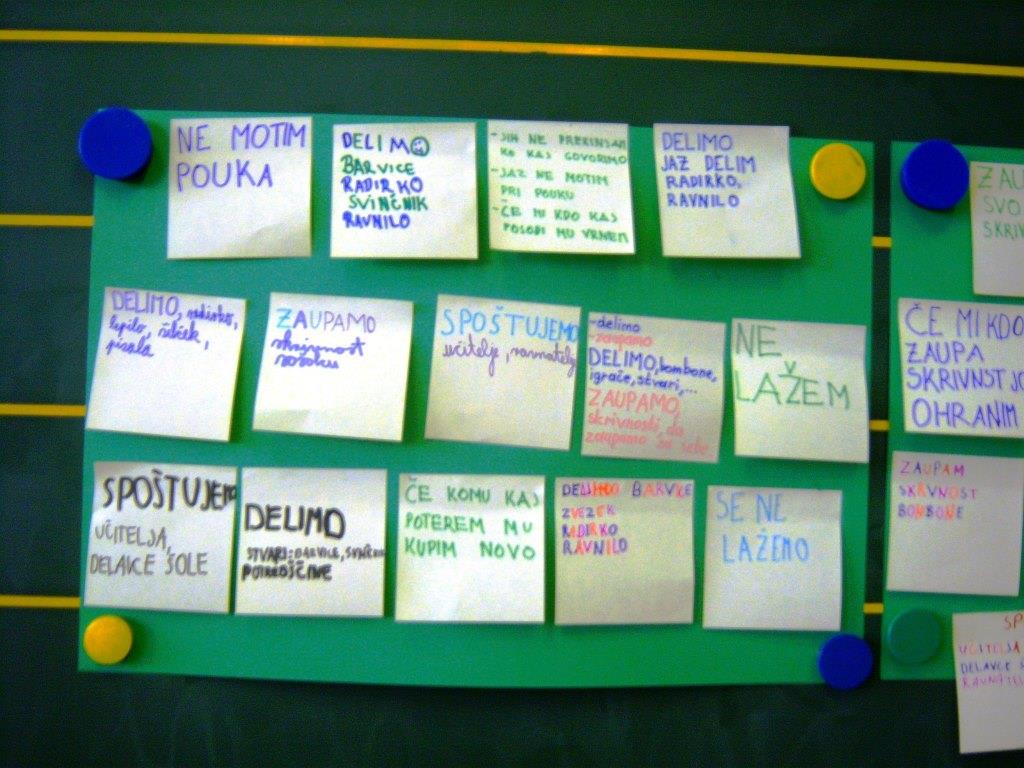 NE MOTIM
POUKA
DELIMO
BARVICE
RADIRKO
SVINČNIK
RAVNILO
KO KAJ GOVORIMO
- JAZ NE MOTIM
PRI POUKU
- ČE MI KDO KAJ
POSODI MU VRNEM
DELIMO
JAZ DELIM
RADIRKO,
RAVNILO
DELIMO, radirko,
lepilo, šilček,
pisala
ZAUPAMO
skrivnost
SPOŠTUJEMO
učitelje, ravnatelj
-delimo
-zaupamo
DELIMO, bombone,
igrače, stvari,...
ZAUPAMO,
skrivnosti da
zaupamo sa sebe
NE
LAŽEM
SPOŠTUJEMO
UČITELJA,
DELAVCE ŠOLE
DELIMO
STVARI: BARVICE,
ČE KOMU KAJ
POTEREM MU
KUPIM NOVO
BARVICE
ZVEZEK
RADIRKO
RAVNILO
SE NE
LAŽEMO
ZAU
SVO
SKRIV
ČE MI KDO
ZAUPA
SKRIVNST JO
OHRANIM
ZAUPAM
SKRVNOST
BONBONE
SP
UČITELJA
DELAVCE
RAVNATEL